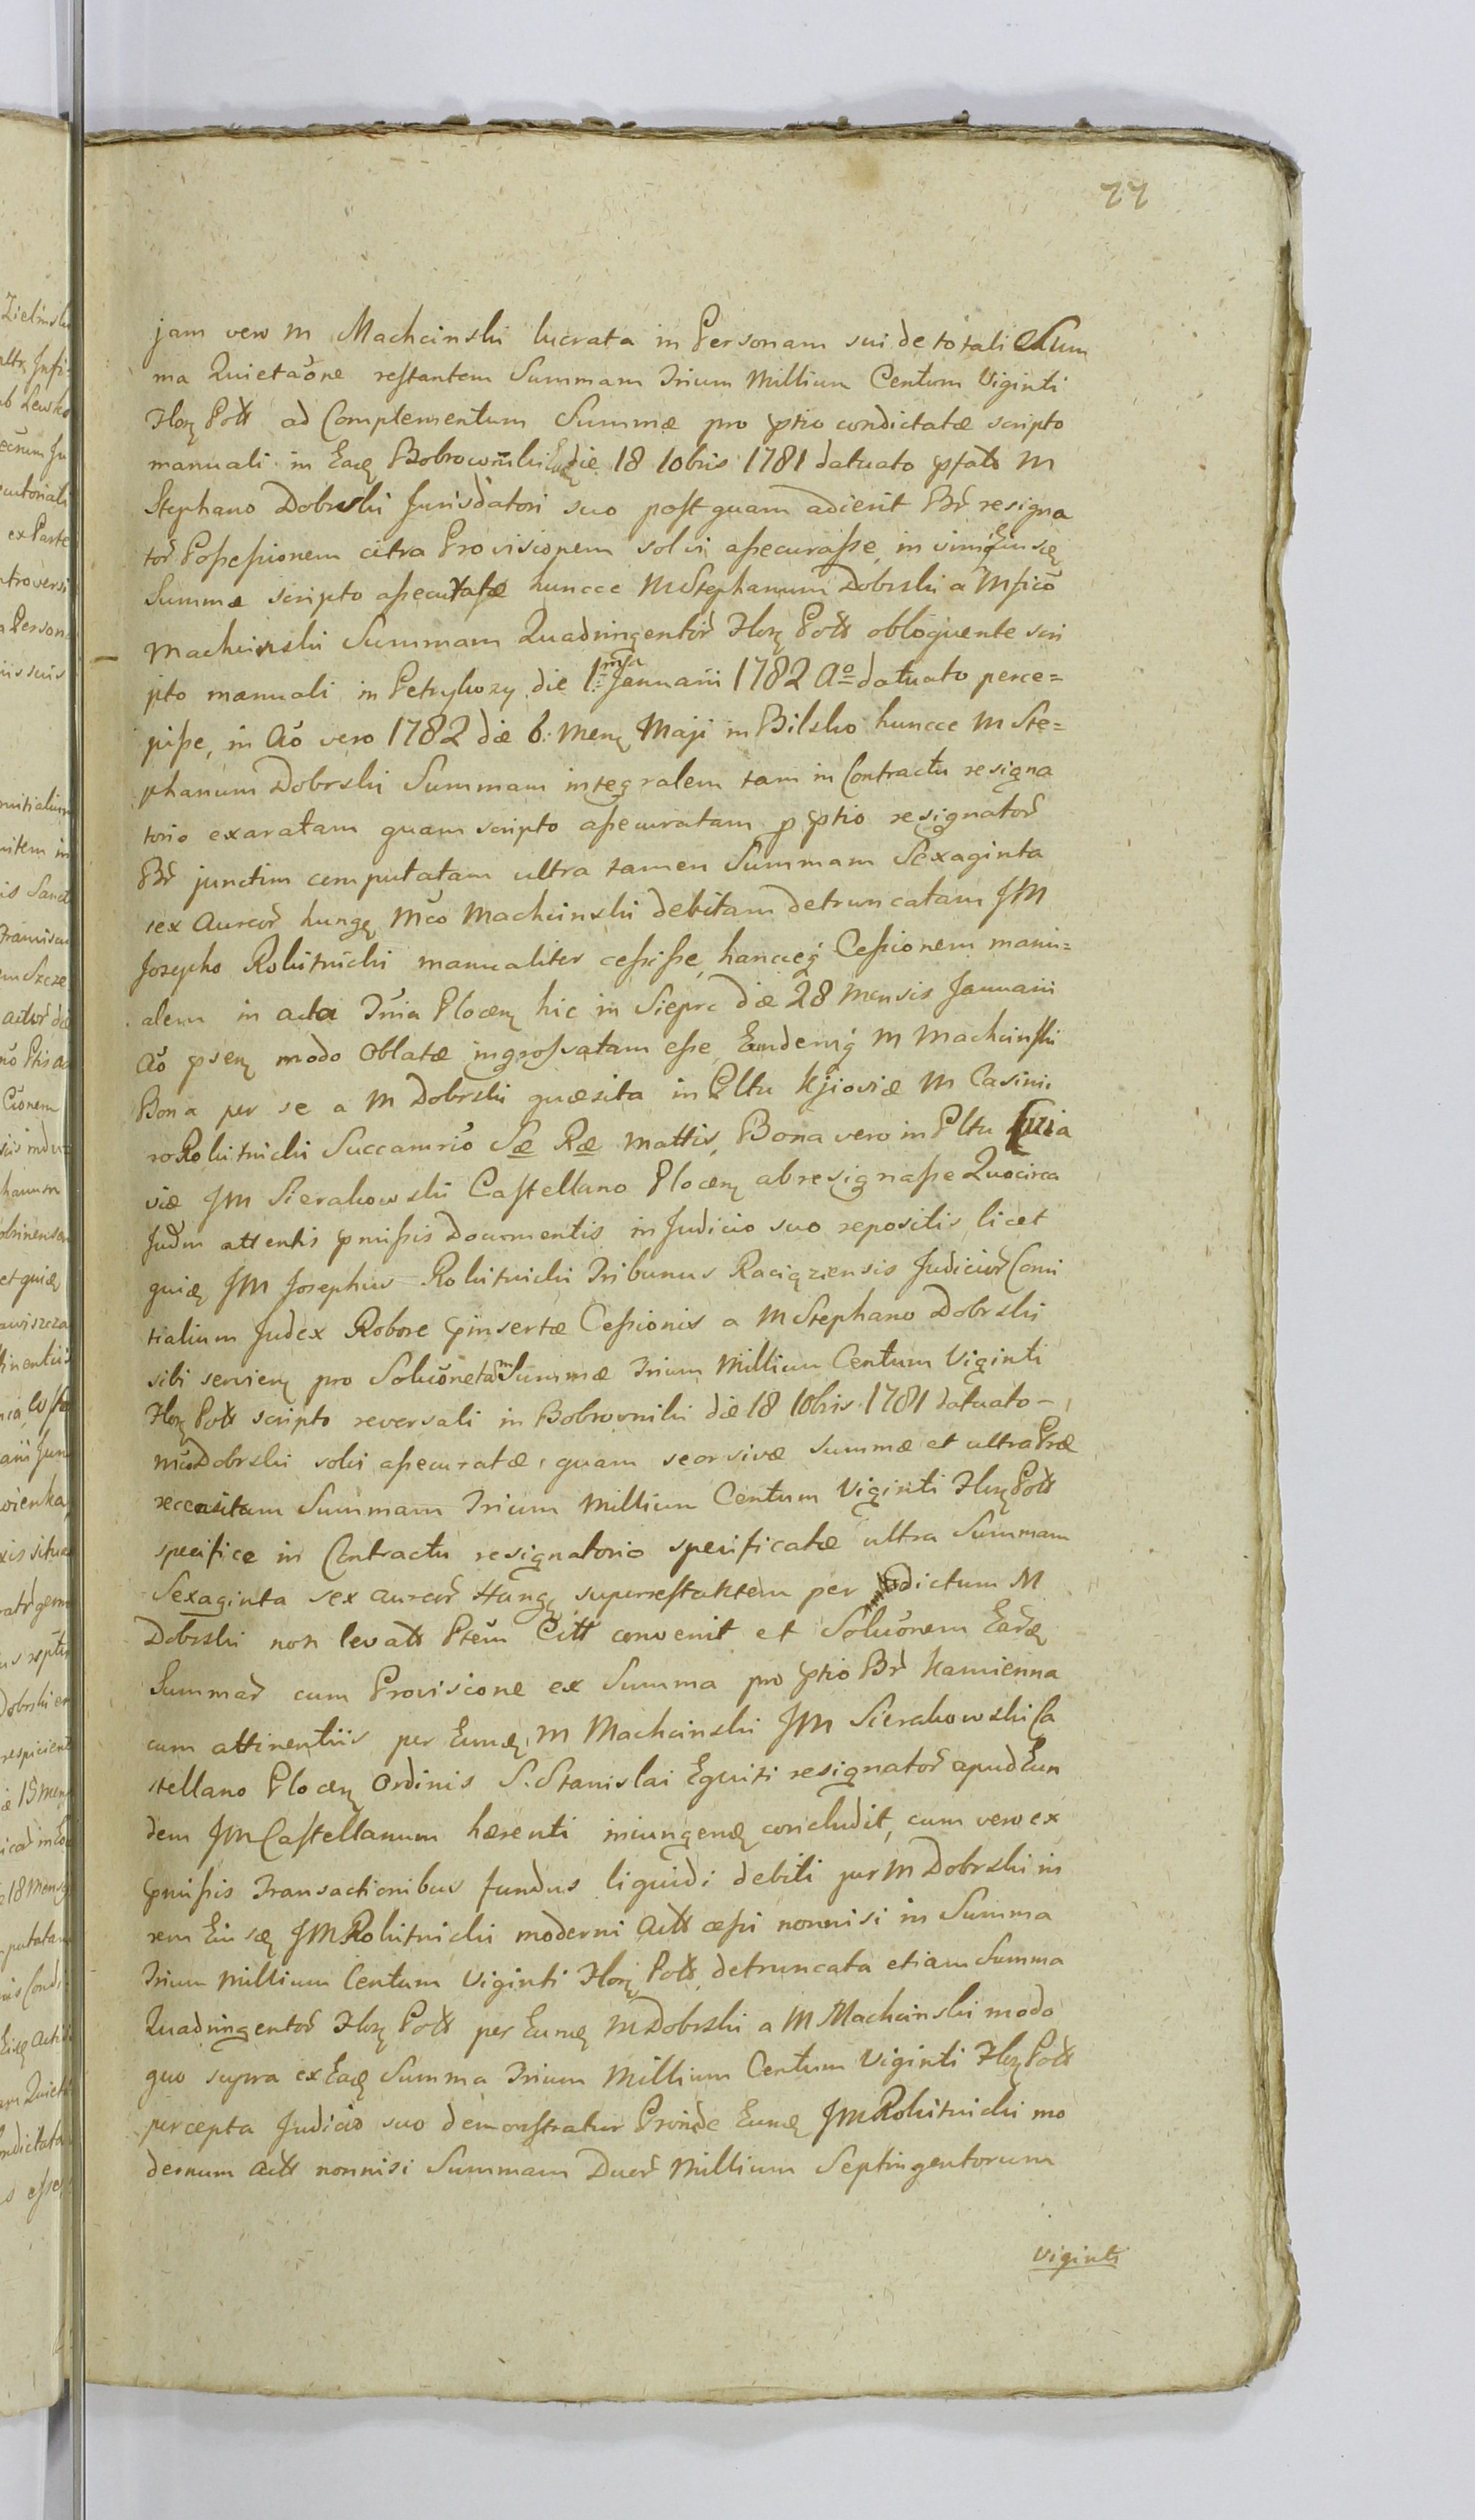 77
jam vero M Machcinski lucrata in Personam sui de totali Sum
ma Quietaõne restantem Summam Trium Millium Centum Viginti
Florę Połł ad Complementum Summæ pro pťio condictatæ scripto
manuali in Eadę Bobrowniki die 18 10bris 1781 datuato pfato M
Stephano Dobrski Jurisdatori suo postquam adierit Br̃ resigna
tor̃ Possessionem citra Provisionem solvi assecurasse, in vim Eiusdę
Summæ scripto assecuratæ huncce M Stephanum Dobrski a Mficõ
Machcinski Summam Quadringentor̃ Florę Połł obloquente scri
pto manuali in Petrykozy die 1ma Januarii 1782 Ao datuato perce=
pisse, in Aõ vero 1782 die 6. Mens Maji in Bilsko huncce M Ste=
phanum Dobrski Summam integralem tam in Contractu resigna
torio exaratam quam scripto assecuratam p pťio resignator̃
Br̃ junctim computatam ultra tamen Summam Sexaginta
sex Aureor̃ hungę Mco Machcinski debitam detruncatam JM
Josepho Rokitnicki manualiter cessisse, hancceq̃ Cessionem manu=
alem in acta Tr̃ia Plocenę hic in Sieprc die 28 Mensis Januarii
Aõ psenę modo Oblatæ ingrossatam esse, Eundemq̃ M Machcinski
Bona per se a M Dobrski quæsita in Pltu Kjioviæ M Casimi
ro Rokitnicki Succamrio Sæ Ræ Mattis, Bona vero in Pltu Cuia
viæ JM Sierakowski Castellano Plocenę abresignasse Quocirca
Judm attentis pmissis Documentis in Judicio suo repositis, licet
quidę JM Josephus Rokitnicki Tribunus Raciąziensis Judicior̃ Comi
tialium Judex Robore pinsertæ Cessionis a M Stephano Dobrski
sibi servienę pro Soluõne tam Summæ Trium Millium Centum Viginti
Florę Połł scripto reversali in Bobrowniki die 18 10bris 1781 datuato -
Mco Dobrski solvi assecuratæ, quam seorsivæ Summæ et ultra Præ
recensitam Summam Trium Millium Centum Viginti Florę Połł
specifice in Contractu resignatorio specificatæ ultra Summam
Sexaginta sex aureor̃ Hungę superrestantem per dictum M
Dobrski non levatt Ptem Citt convenit et Soluõnem Eardę
Summar̃ cum Provisione ex Summa pro pťio Br̃ Kamienna
cum attinentiis per Eumdę M Machcinski JM Sierakowski Ca
stellano Plocenę Ordinis S. Stanislai Equiti resignator̃ apud Eun
dem JM Castellanum hærenti iniungendę concludit, cum vero ex
pmissis Transactionibus fundus liquidi debiti per M Dobrski in
rem Eiusdę JM Rokitnicki moderni Actt cæssi nonnisi in Summa
Trium Millium Centum Viginti Florę Połł, detruncata etiam Summa
Quadringentor̃ Florę Połł per Eumdę M Dobrski a M Machcinski modo
quo supra ex Eadę Summa Trium Millium Centum Viginti Florę Połł
percepta Judicio suo demonstratur Proinde Eumdę JM Rokitnicki mo
dernum Actt nonnisi Summam Duor̃ Millium Septingentorum
Viginti